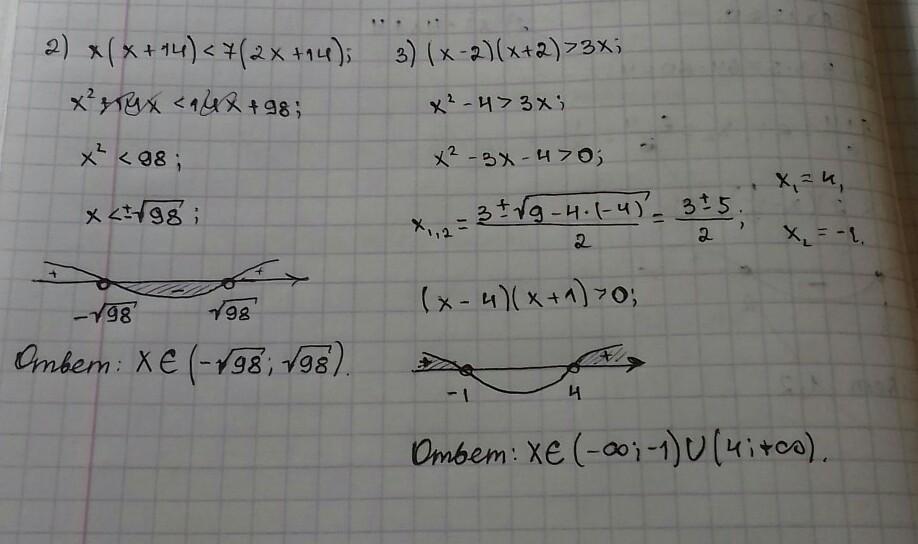 2) x(x+14)<7(2x+14);
x²+14x<14x+98;
x²<98;
x<±√98;
+ - +
-√98 √98
Ответ: x∈(-√98; √98).
3) (x-2)(x+2)>3x;
x²-4>3x;
x²-3x-4>0;
x₁,₂=(3±√(9-4·(-4)))/2=(3±5)/2; x₁=4, x₂=-1.
(x-4)(x+1)>0;
+ +
-1 4
Ответ: x∈(-∞;-1)∪(4;+∞).